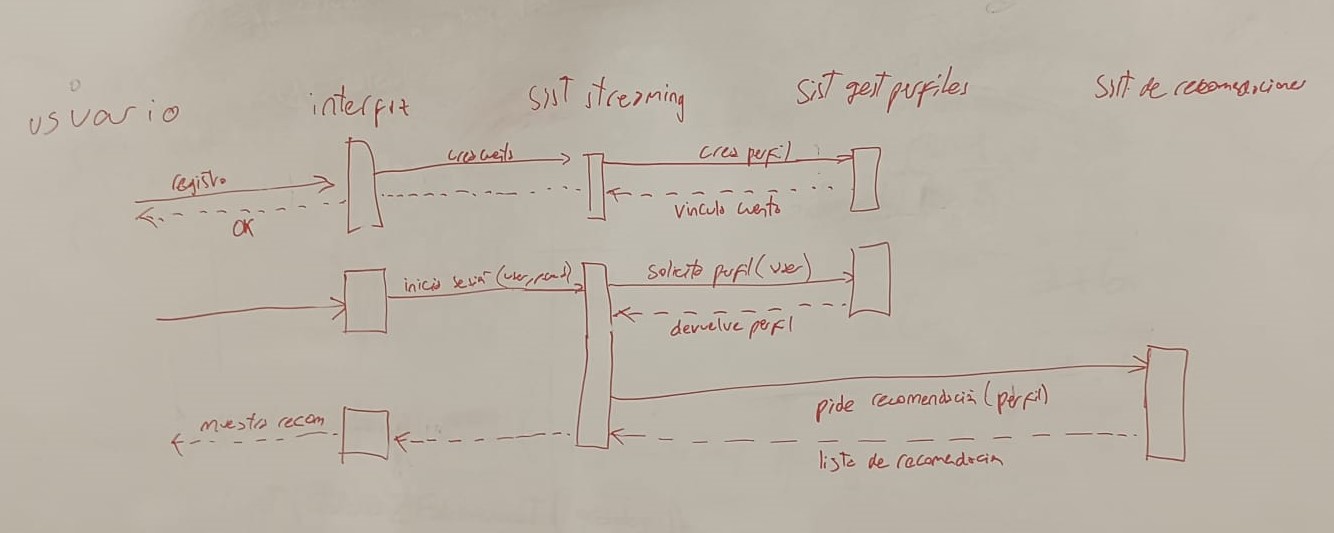 usuario
interfaz
sist streaming
sist gest perfiles
sist. de recomendaciones
registro
crea cuenta
crea perfil
OK
vincula cuenta
inicia sesión (user, passwd)
solicita perfil (user)
devuelve perfil
pide recomendación (perfil)
muestra recom
lista de recomendación